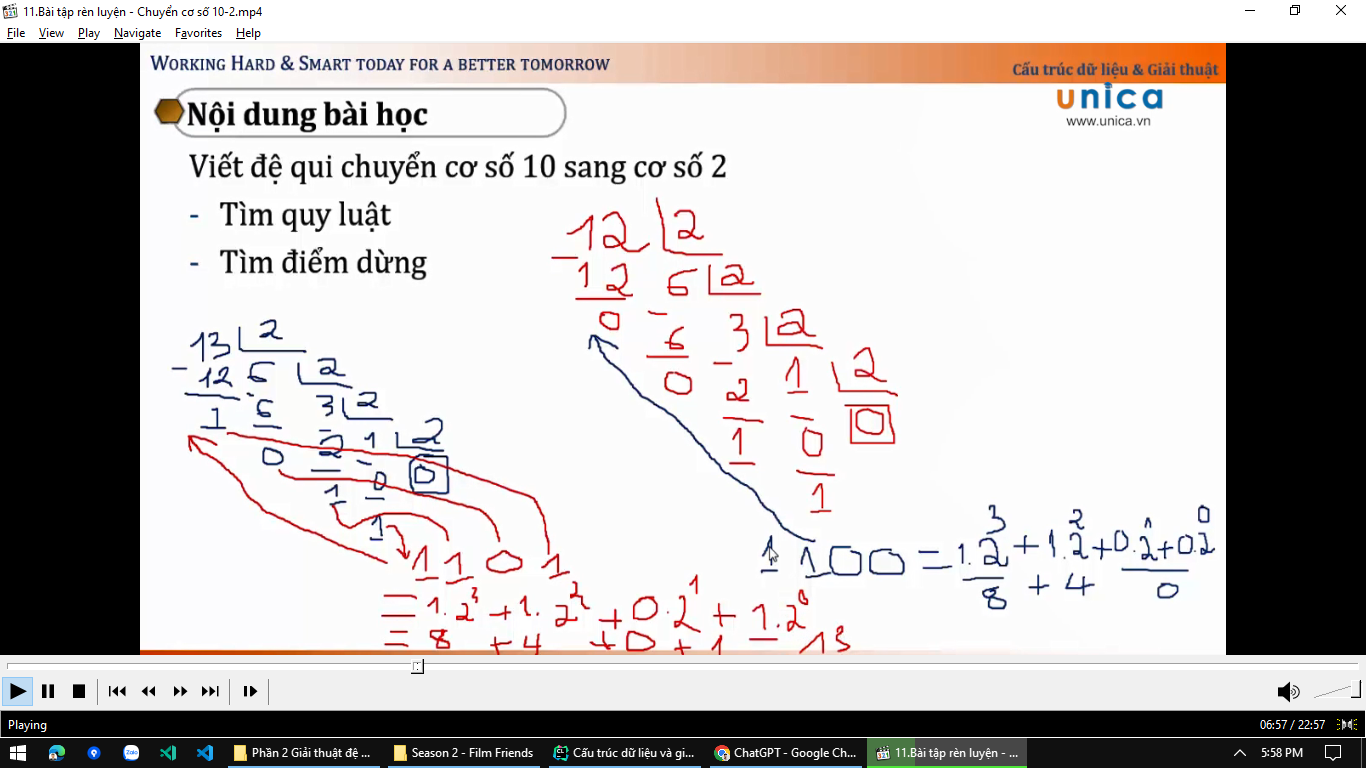 11.Bài tập rèn luyện - Chuyển cơ số 10-2.mp4
File View Play Navigate Favorites Help
WORKING HARD & SMART TODAY FOR A BETTER TOMORROW
Cấu trúc dữ liệu & Giải thuật
unica
www.unica.vn
Nội dung bài học
Viết đệ qui chuyển cơ số 10 sang cơ số 2
- Tìm quy luật
- Tìm điểm dừng
12 2
- 12 6 2
0 - 6 3 2
0 - 2 1 2
1 - 0 0
1
13 2
- 12 6 2
1 - 6 3 2
0 - 2 1 2
1 - 0 0
1
1 1 0 1
= 1.2³ + 1.2² + 0.2¹ + 1.2⁰
= 8 + 4 + 0 + 1 13
1 1 0 0 = 1.2³ + 1.2² + 0.2¹ + 0.2⁰
8 + 4 0
Playing
06:57 / 22:57
Zalo
Phần 2 Giải thuật đệ ...
Season 2 - Film Friends
Cấu trúc dữ liệu và gi...
ChatGPT - Google Ch...
11.Bài tập rèn luyện - ...
5:58 PM